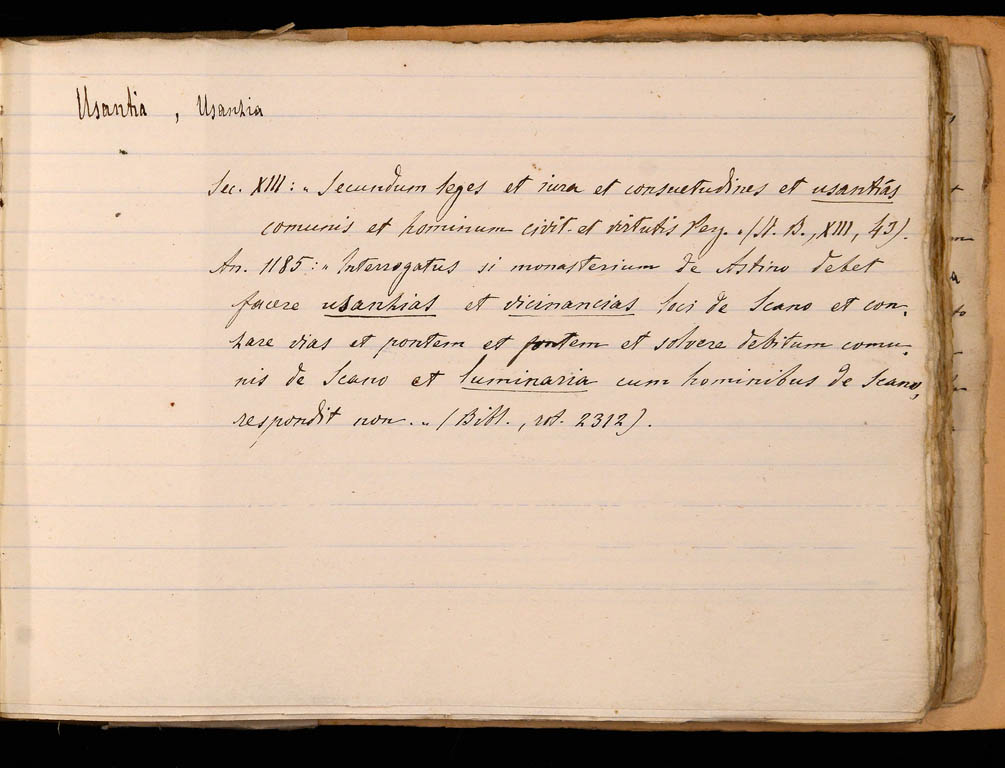 Usantia, Usanzia
Sec. XIII: „ Secundum leges et iura et consuetudines et usantias
comunis et hominum civit. et virtutis Perg. „ (St. B., XIII, 43).
An. 1185: „ Interrogatus si monasterium de Astino debet
facere usanzias et vicinancias loci de Scano et con-
zare vias et pontem et fontem et solvere debitum comu-
nis de Scano et luminaria cum hominibus de Scano,
respondit non. „ (Bibl., rot. 2312).